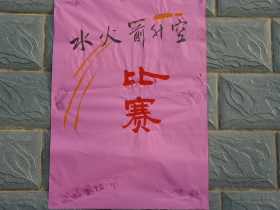 水火箭升空
比赛